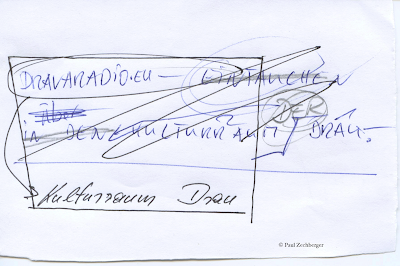 DRAVARADIO.EU — EINTAUCHEN
DER
in DEN KULTURRAUM DRAU.
Kulturraum Drau
© Paul Zechberger